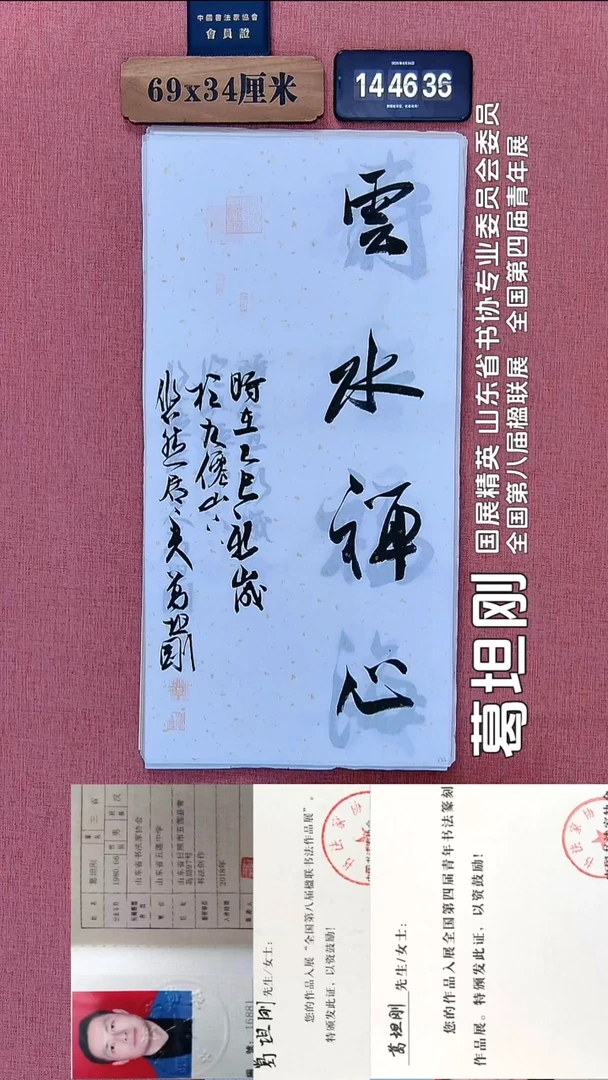 中國書法家協會
會員證
69x34厘米
14 46 36
雲水禪心
時在乙巳秋歲
於九僊山下
悠然居主人葛坦剛
葛坦刚
国展精英 山东省书协专业委员会委员
全国第八届楹联展 全国第四届青年展
葛坦刚
1980.06
男
汉
山东省书法家协会
山东省五莲中学
书法创作
2018年
葛坦刚 先生/女士:
您的作品入展“全国第八届楹联书法作品展”。
特颁发此证,以资鼓励!
葛坦刚 先生/女士:
您的作品入展全国第四届青年书法篆刻
作品展。特颁发此证,以资鼓励!